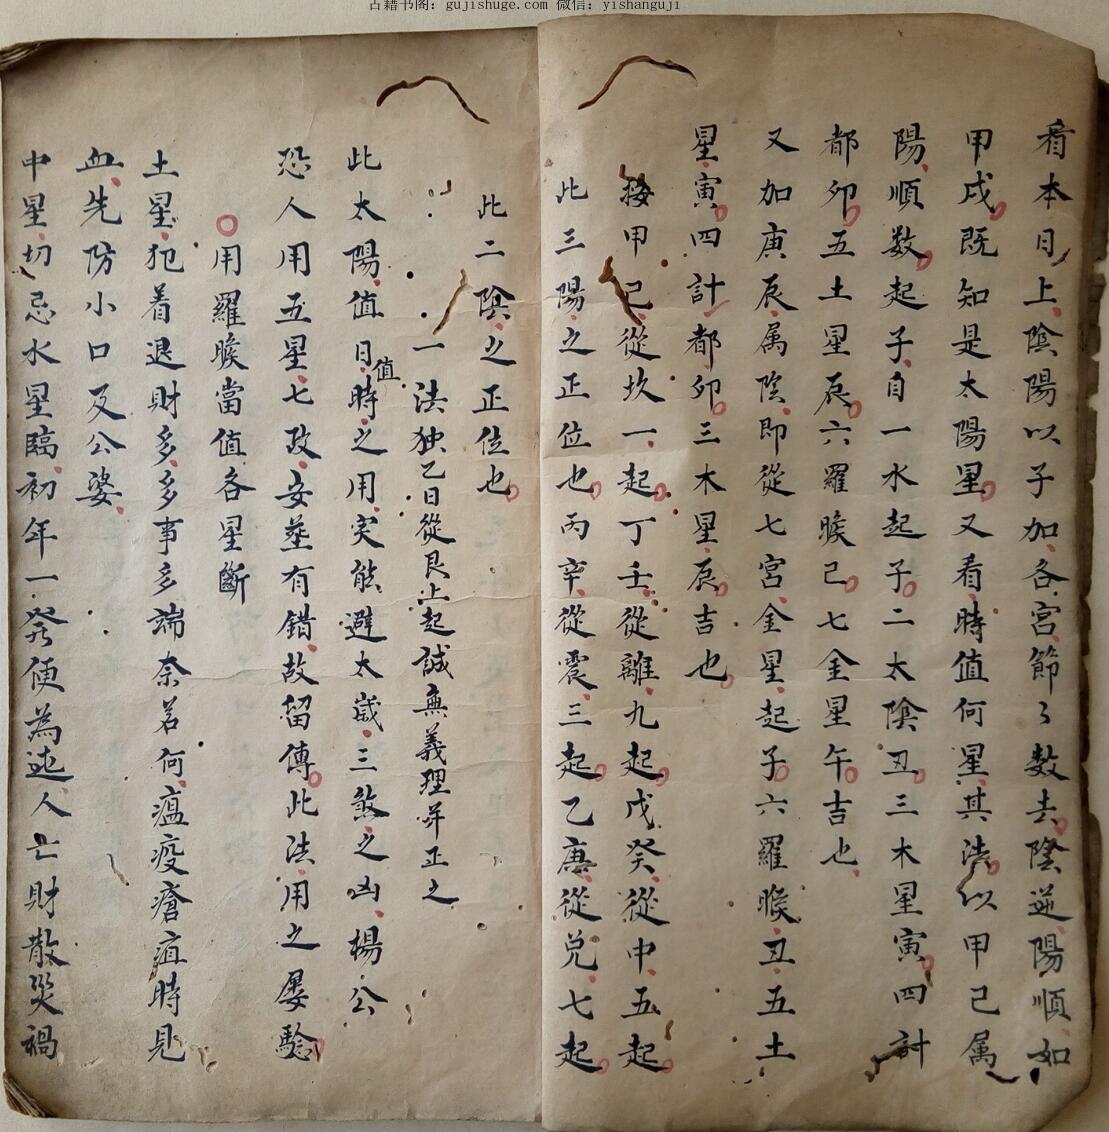 古籍书阁：gujishuge.com 微信：yishanguji
看本日上陰陽以子加各宮節々数去陰逆陽順如
甲戌既知是太陽星又看時值何星其法以甲己属
陽順数起子自一水起子二太陰丑三木星寅四計
都卯五土星辰六羅睺己七金星午吉也
又加庚辰属陰即從七宮金星起子六羅睺丑五土
星寅四計都卯三木星辰吉也
按甲己從坎一起丁壬從離九起戊癸從中五起
此三陽之正位也丙辛從震三起乙庚從兌七起
此二陰之正位也
一法独乙日從艮上起誠無義理并正之
此太陽值日值時之用实能避太歲三煞之凶楊公
恐人用五星七政安塟有錯故留傳此法用之屡驗
用羅睺當值各星斷
土星犯着退財多多事多端奈若何瘟疫瘡疽時見
血先防小口及公婆
中星切忌水星臨初年一發便為迍人亡財散災禍